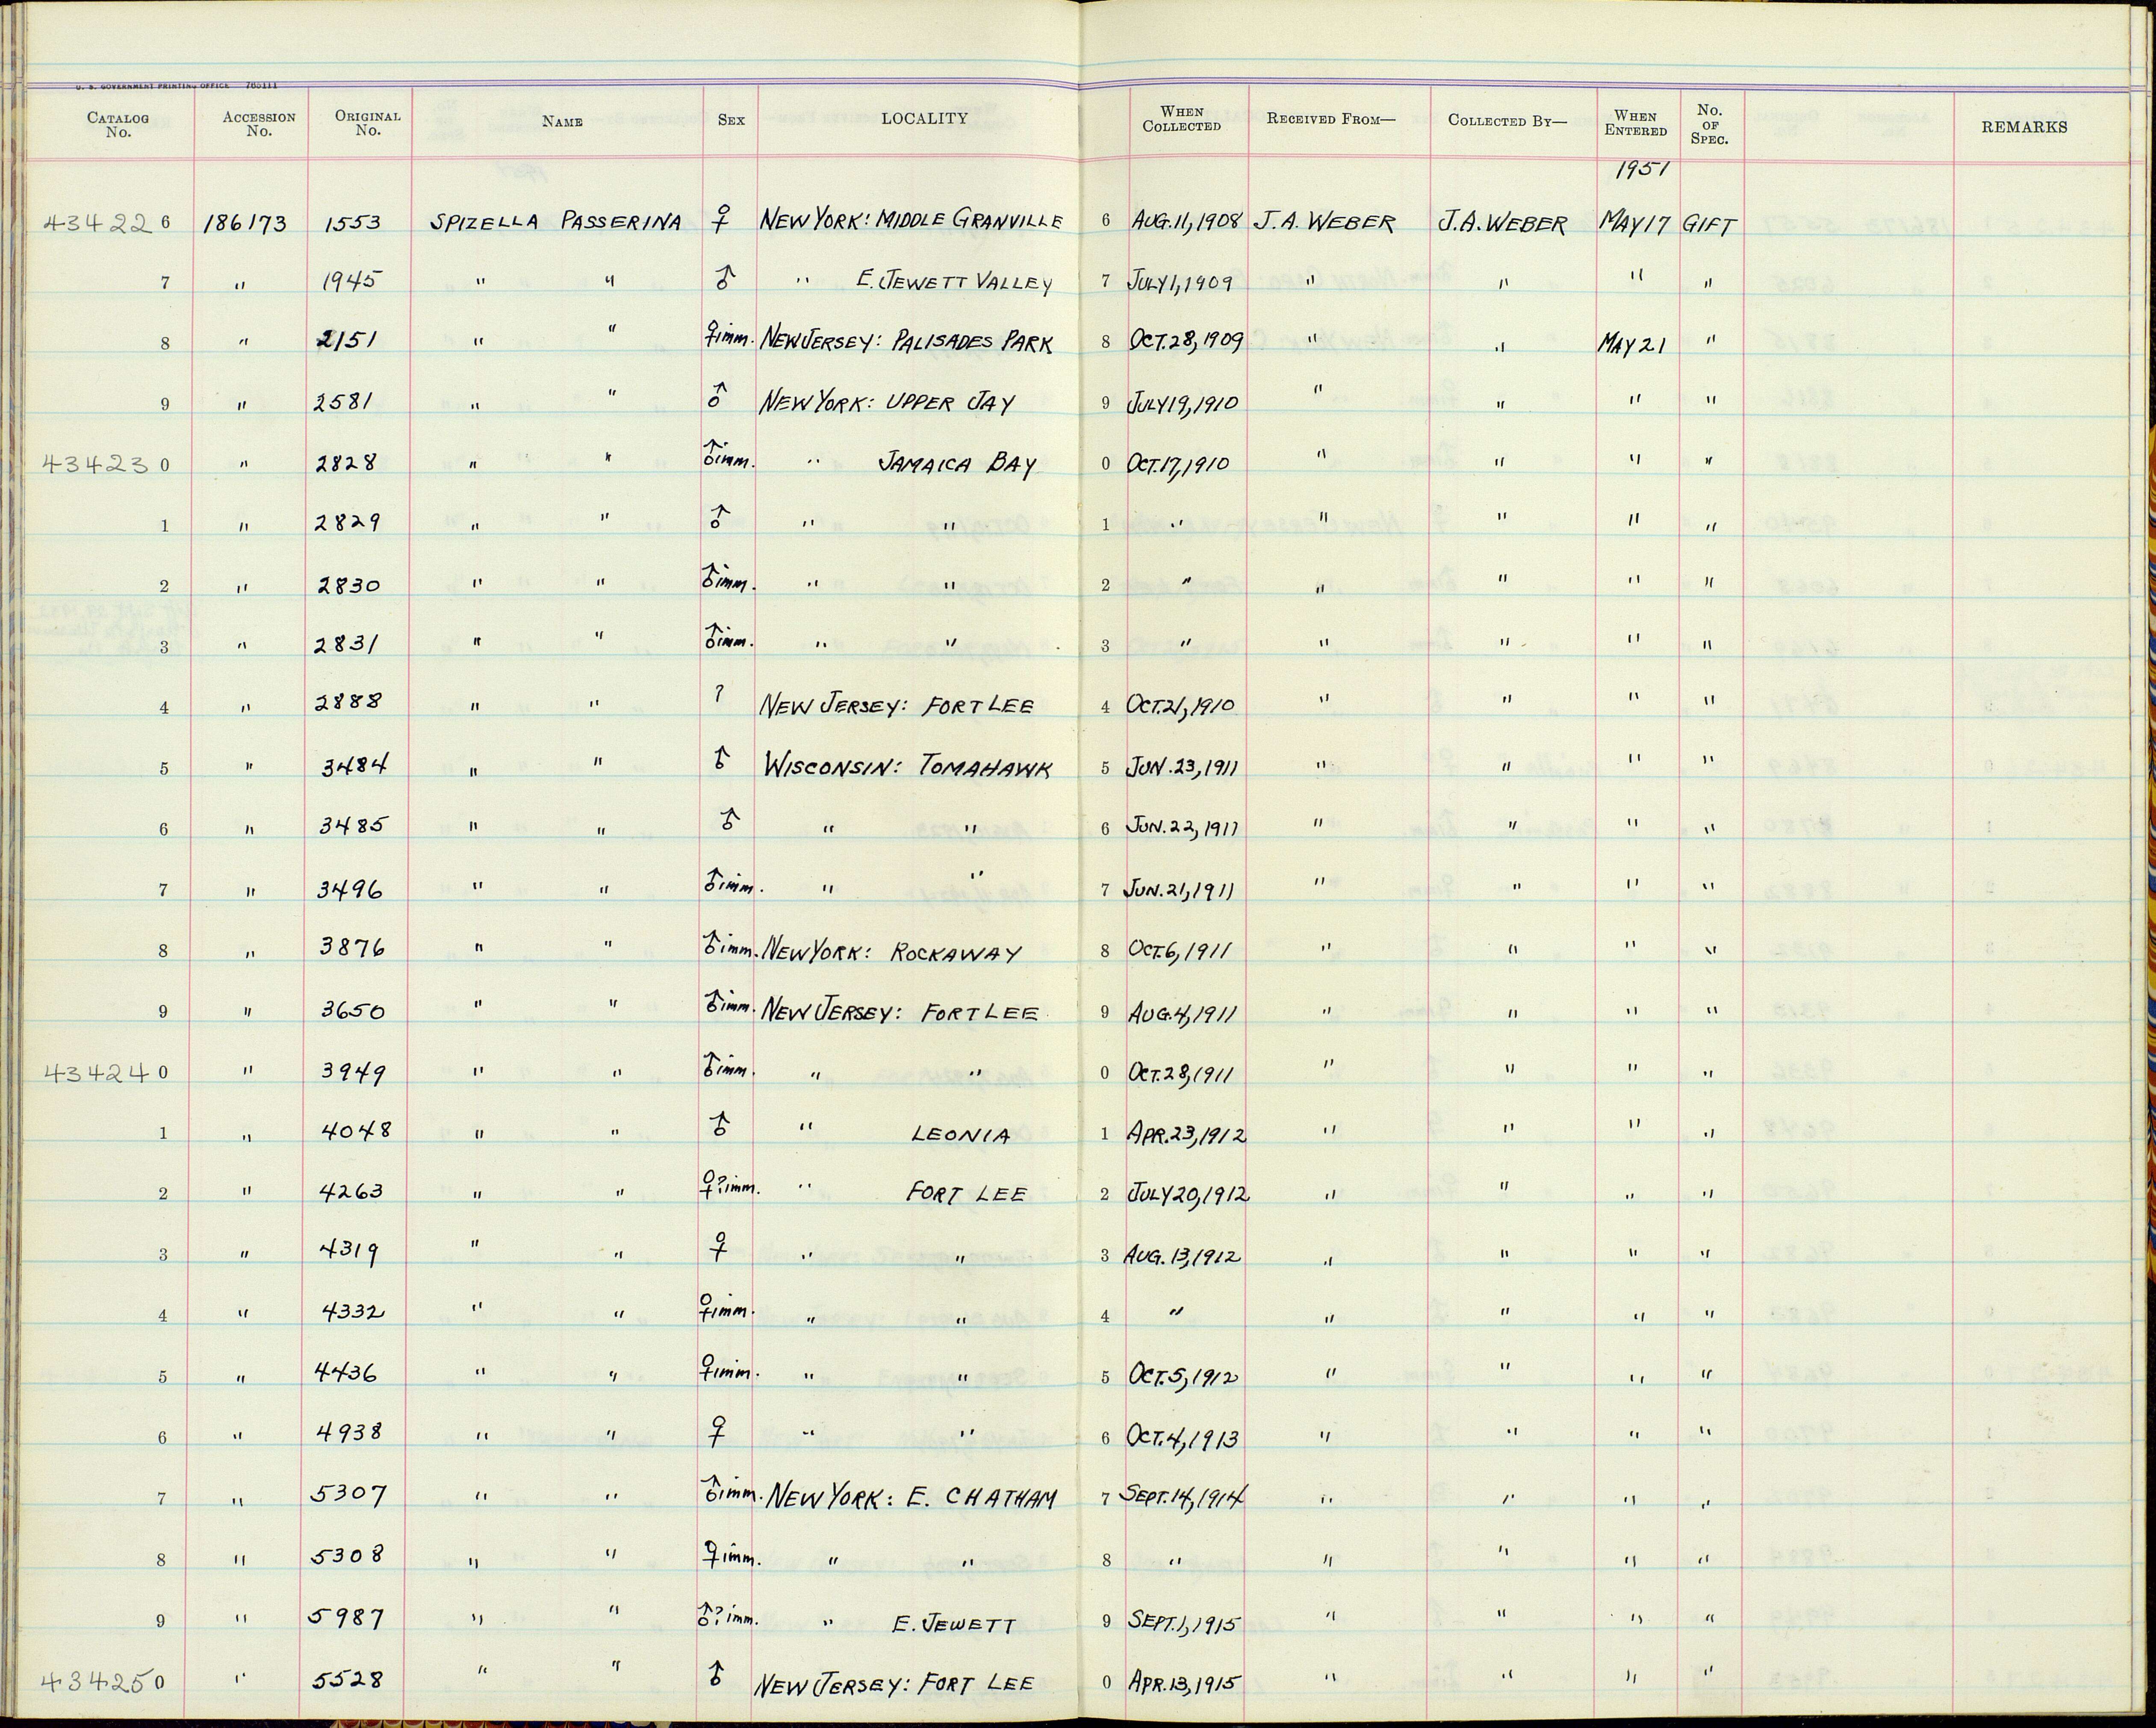 U. S. GOVERNMENT PRINTING OFFICE 765111
CATALOG No. ACCESSION No. ORIGINAL No. NAME SEX LOCALITY WHEN COLLECTED RECEIVED FROM— COLLECTED BY— WHEN ENTERED No. OF SPEC. REMARKS
1951
434226 186173 1553 SPIZELLA PASSERINA ♀ NEW YORK: MIDDLE GRANVILLE 6 AUG. 11, 1908 J. A. WEBER J. A. WEBER MAY 17 GIFT
7 " 1945 " " ♂ " E. JEWETT VALLEY 7 JULY 1, 1909 " " " "
8 " 2151 " " ♀ imm. NEW JERSEY: PALISADES PARK 8 OCT. 28, 1909 " " MAY 21 "
9 " 2581 " " ♂ NEW YORK: UPPER JAY 9 JULY 19, 1910 " " " "
434230 " 2828 " " ♂ imm. " JAMAICA BAY 0 OCT. 17, 1910 " " " "
1 " 2829 " " ♂ " " 1 " " " " "
2 " 2830 " " ♂ imm. " " 2 " " " " "
3 " 2831 " " ♂ imm. " " 3 " " " " "
4 " 2888 " " ? NEW JERSEY: FORT LEE 4 OCT. 21, 1910 " " " "
5 " 3484 " " ♂ WISCONSIN: TOMAHAWK 5 JUN. 23, 1911 " " " "
6 " 3485 " " ♂ " " 6 JUN. 22, 1911 " " " "
7 " 3496 " " ♂ imm. " " 7 JUN. 21, 1911 " " " "
8 " 3876 " " ♂ imm. NEW YORK: ROCKAWAY 8 OCT. 6, 1911 " " " "
9 " 3650 " " ♂ imm. NEW JERSEY: FORT LEE 9 AUG. 4, 1911 " " " "
434240 " 3949 " " ♂ imm. " " 0 OCT. 28, 1911 " " " "
1 " 4048 " " ♂ " LEONIA 1 APR. 23, 1912 " " " "
2 " 4263 " " ♀? imm. " FORT LEE 2 JULY 20, 1912 " " " "
3 " 4319 " " ♀ " " 3 AUG. 13, 1912 " " " "
4 " 4332 " " ♀ imm. " " 4 " " " " "
5 " 4436 " " ♀ imm. " " 5 OCT. 5, 1912 " " " "
6 " 4938 " " ♀ " " 6 OCT. 4, 1913 " " " "
7 " 5307 " " ♂ imm. NEW YORK: E. CHATHAM 7 SEPT. 14, 1914 " " " "
8 " 5308 " " ♀ imm. " " 8 " " " " "
9 " 5987 " " ♂? imm. " E. JEWETT 9 SEPT. 1, 1915 " " " "
434250 " 5528 " " ♂ NEW JERSEY: FORT LEE 0 APR. 13, 1915 " " " "